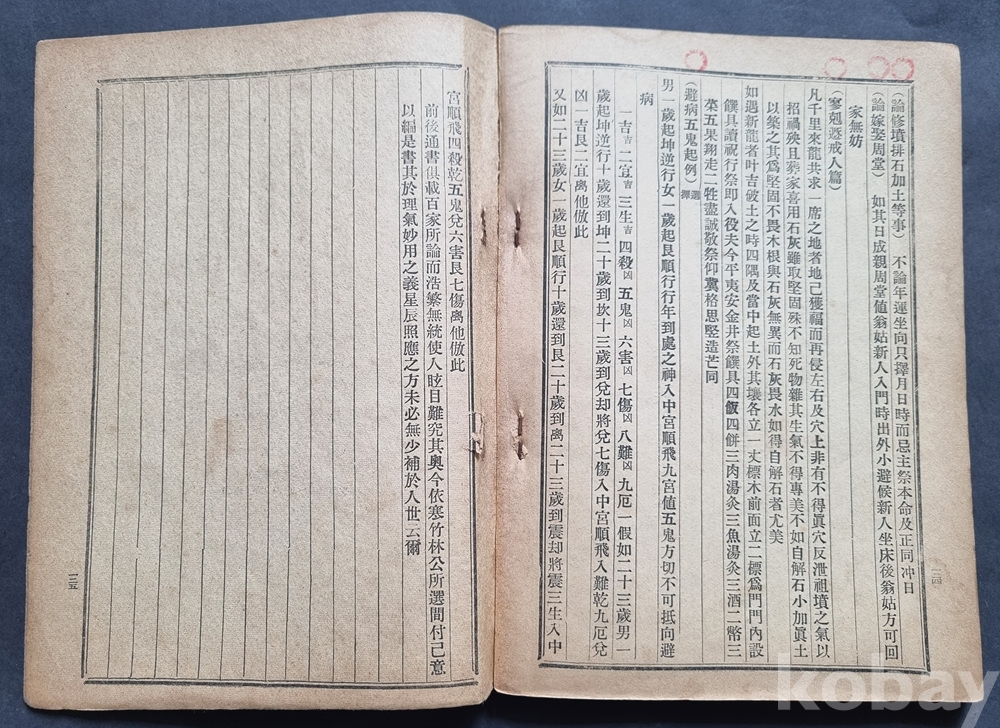 (論修墳排石加土等事) 不論年運坐向只擇月日時而忌主祭本命及正同冲日
(論嫁娶周堂) 如其日成親周堂值翁姑新人入門時出外小避候新人坐床後翁姑方可回
家無妨
(寥剋遜戒人篇)
凡千里來龍共求一席之地者地己獲福而再侵左右及穴上非有不得眞穴反泄祖墳之氣以
招禍殃且葬家喜用石灰雖取堅固殊不知死物雜其生氣不得專美不如自解石小加眞土
以築之其爲堅固不畏木根與石灰無異而石灰畏水如得自解石者尤美
如遇新龍者叶吉破土之時四隅及當中起土外其壤各立一丈標木前面立二標爲門門內設
饌具讀祝行祭即入役夫今平夷安金井祭饌具四飯四餠三肉湯灸三魚湯灸三酒二幣三
菜五果翔走二牲盡誠敬祭仰冀格思竪造芒同
(避病五鬼起例) 選擇
男一歲起坤逆行女一歲起艮順行行年到處之神入中宮順飛九宮値五鬼方切不可抵向避
病
一吉吉 二宜吉 三生吉 四殺凶 五鬼凶 六害凶 七傷凶 八難凶 九厄一假如二十三歲男一
歲起坤逆行十歲還到坤二十歲到坎十三歲到兌却將兌七傷入中宮順飛入難乾九厄兌
凶一吉艮二宜离他倣此
又如二十三歲女一歲起艮順行十歲還到艮二十歲到离二十三歲到震却將震三生入中
二四
宮順飛四殺乾五鬼兌六害艮七傷离他倣此
前後通書俱載百家所論而浩繁無統使人眩目難究其奧今依寒竹林公所選間付己意
以編是書其於理氣妙用之義星辰照應之方未必無少補於人世云爾
二五
kobay